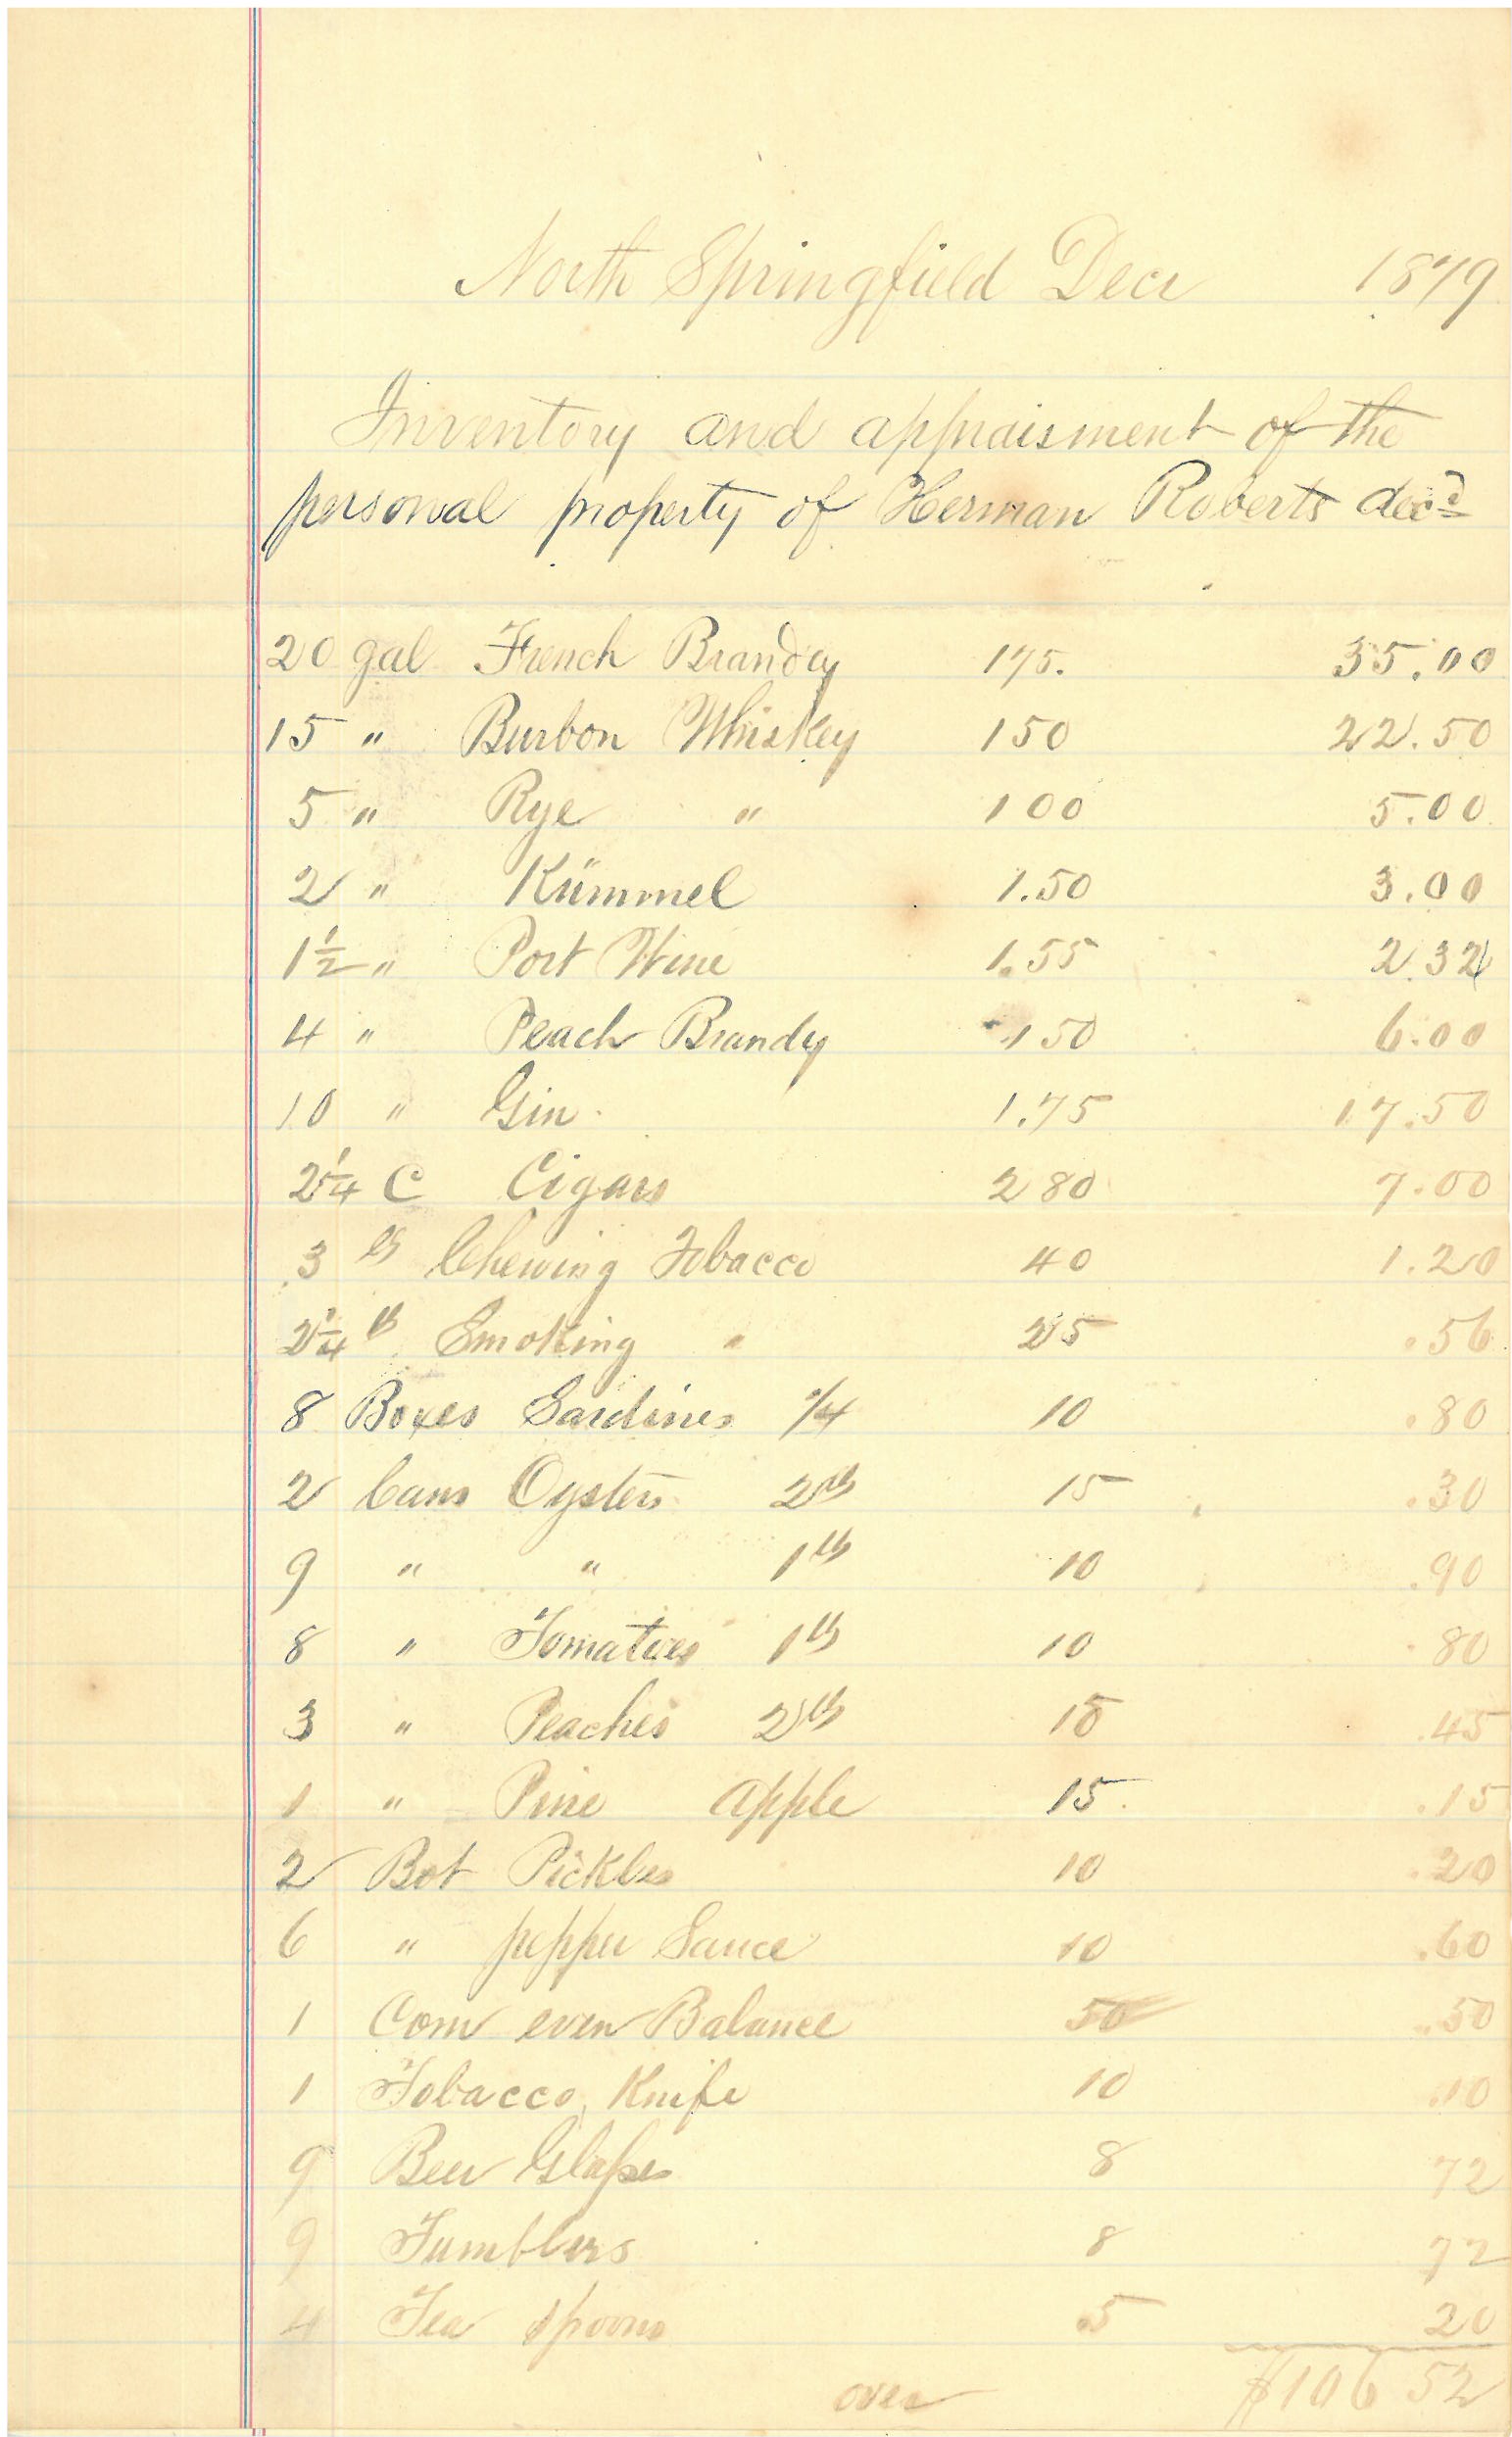 North Springfield Decr 1879
Inventory and appraisment of the
personal property of Herman Roberts decd
20 gal French Branday 175. 35.00
15 " Burbon Whiskey 150 22.50
5 " Rye " 100 5.00
2 " Kümmel 1.50 3.00
1½ " Port Wine 1.55 2.32
4 " Peach Brandy 150 6.00
10 " Gin. 1.75 17.50
2¼ C Cigars 280 7.00
3 lb Chewing Tobacco 40 1.20
2¼ lb Smoking " 25 .56
8 Boxes Sardines ¼ 10 .80
2 Cans Oysters 2lb 15 .30
9 " " 1lb 10 .90
8 " Tomatoes 1lb 10 .80
3 " Peaches 2lb 15 .45
1 " Pine apple 15. .15
2 Bot Pickles 10 .20
6 " pepper Sauce 10 .60
1 Com even Balance 50 .50
1 Tobacco Knife 10 .10
9 Beer Glasses 8 72
9 Tumblers 8 72
4 Tea spoons .5 20
over $106 52